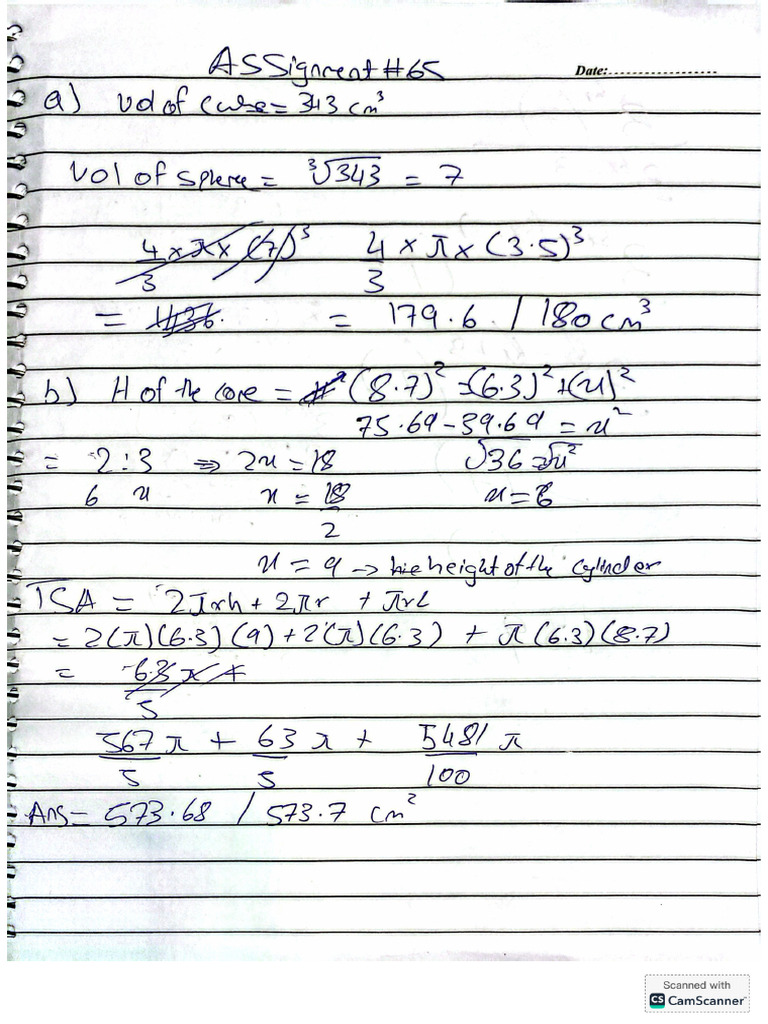 ASSignment #65
Date:..................
a) vol of cube = 343 cm³
Vol of sphere = ³√343 = 7
4/3 × π × (7)³ 4/3 × π × (3.5)³
= = 179.6 / 180 cm³
b) H of the cone = (8.7)² = (6.3)² + (x)²
75.69 - 39.69 = x²
= 2 : 3 ⇒ 2x = 18 √36 = √x²
6 x x = 18/2 x = 6
x = 9 → the height of the cylinder
TSA = 2πrh + 2πr + πrl
= 2(π)(6.3)(9) + 2(π)(6.3) + π(6.3)(8.7)
= 63/5 π +
567/5 π + 63/5 π + 5481/100 π
Ans = 573.68 / 573.7 cm²
Scanned with
CS CamScanner